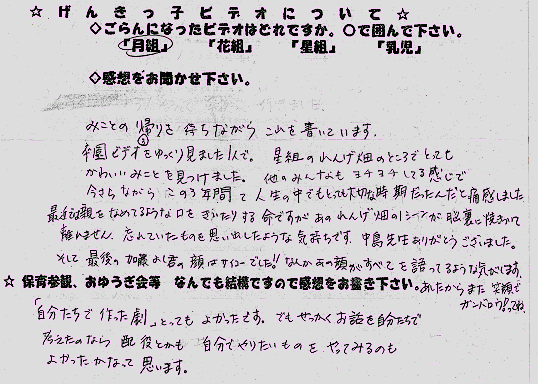 ☆ げんきっ子ビデオについて ☆
◇ごらんになったビデオはどれですか。〇で囲んで下さい。
「月組」 「花組」 「星組」 「乳児」
◇感想をお聞かせ下さい。
みことの帰りを待ちながらこれを書いています。
卒園ビデオをゆっくり見ました1人で。星組のれんげ畑のところでとても
かわいいみことを見つけました。他のみんなもヨチヨチしてる感じで
今さらながらこの3年間て人生の中でもとっても大切な時期だったんだと痛感しました
最近は親をなめてるような口をきいたりする命ですがあのれんげ畑のシーンが脳裏に焼きついて
離れません。忘れていたものを思い出したような気持ちです。中島先生ありがとうございました。
そして最後の加藤よし君の顔はサイコーでした!!なんかあの顔がすべてを語ってるような気がします。
☆ 保育参観、おゆうぎ会等 なんでも結構ですので感想をお書き下さい。
あしたからまた笑顔で
ガンバロウ!ってね。
「自分たちで作った劇」とってもよかったです。でもせっかくお話を自分たちで
考えたのなら配役とかも自分でやりたいものをやってみるのも
よかったかなって思います。